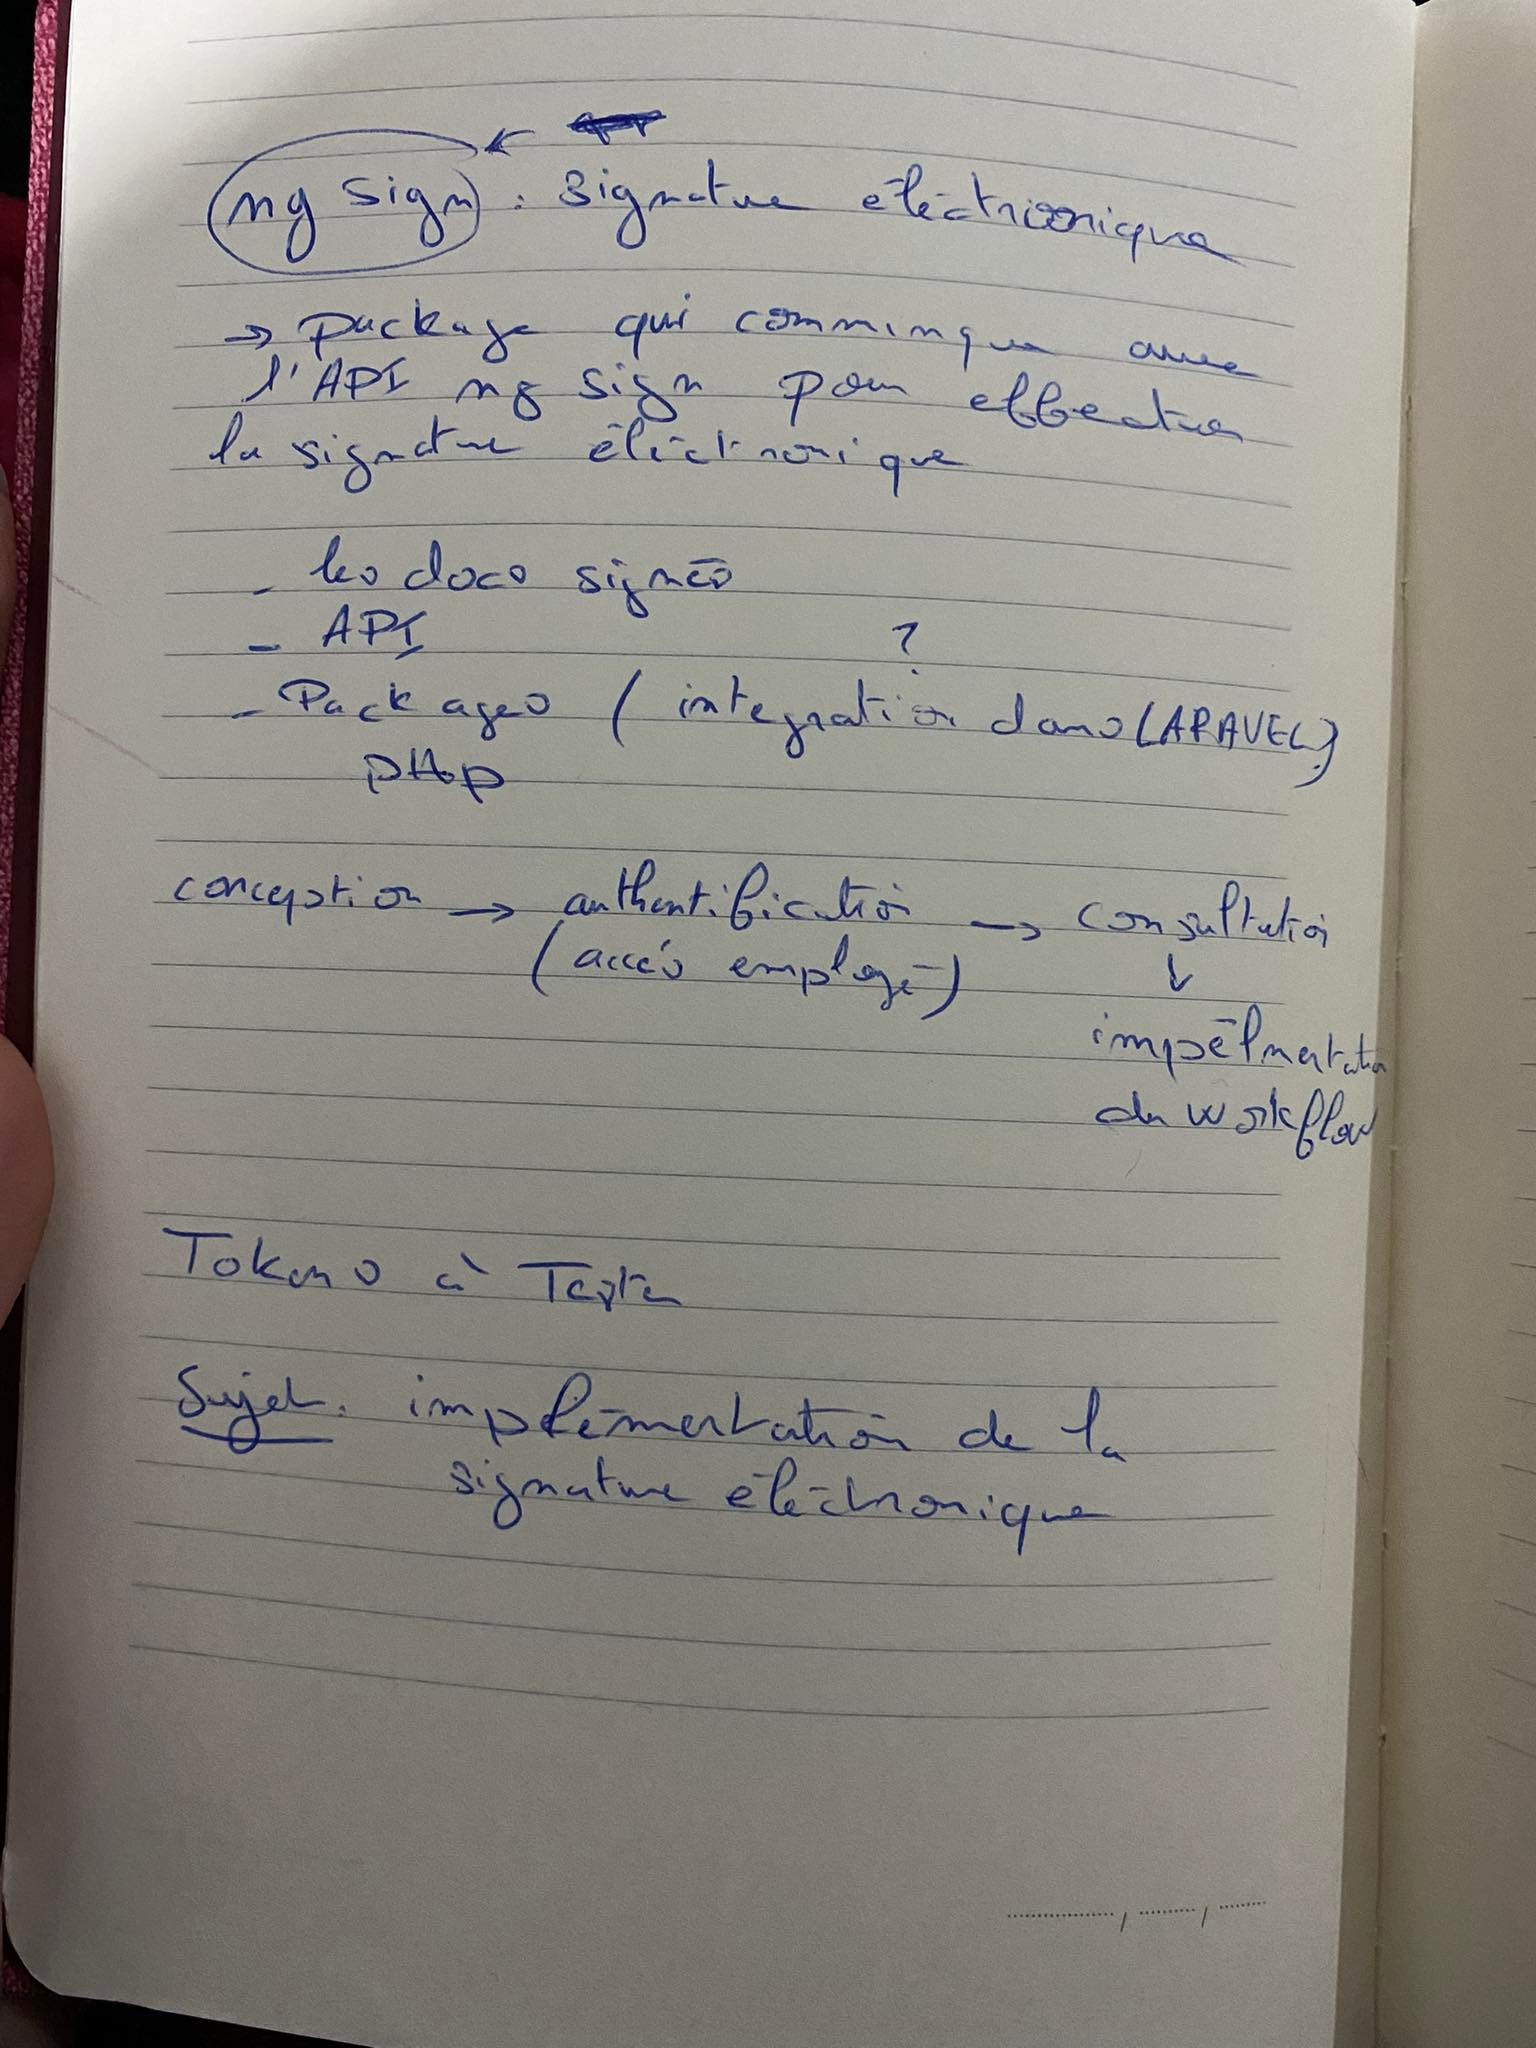 ng sign : signature éléctronique
→ package qui communique avec
l'API ng sign pour effectuer
la signature éléctronique
- les docs signés
- API ?
- Packages (integration dans LARAVEL)
PHP
conception → authentification → consultation
(accés employé) ↓
impélmentation
du workflow
Tokens à Tester
Sujet : implémentation de la
signature éléctronique